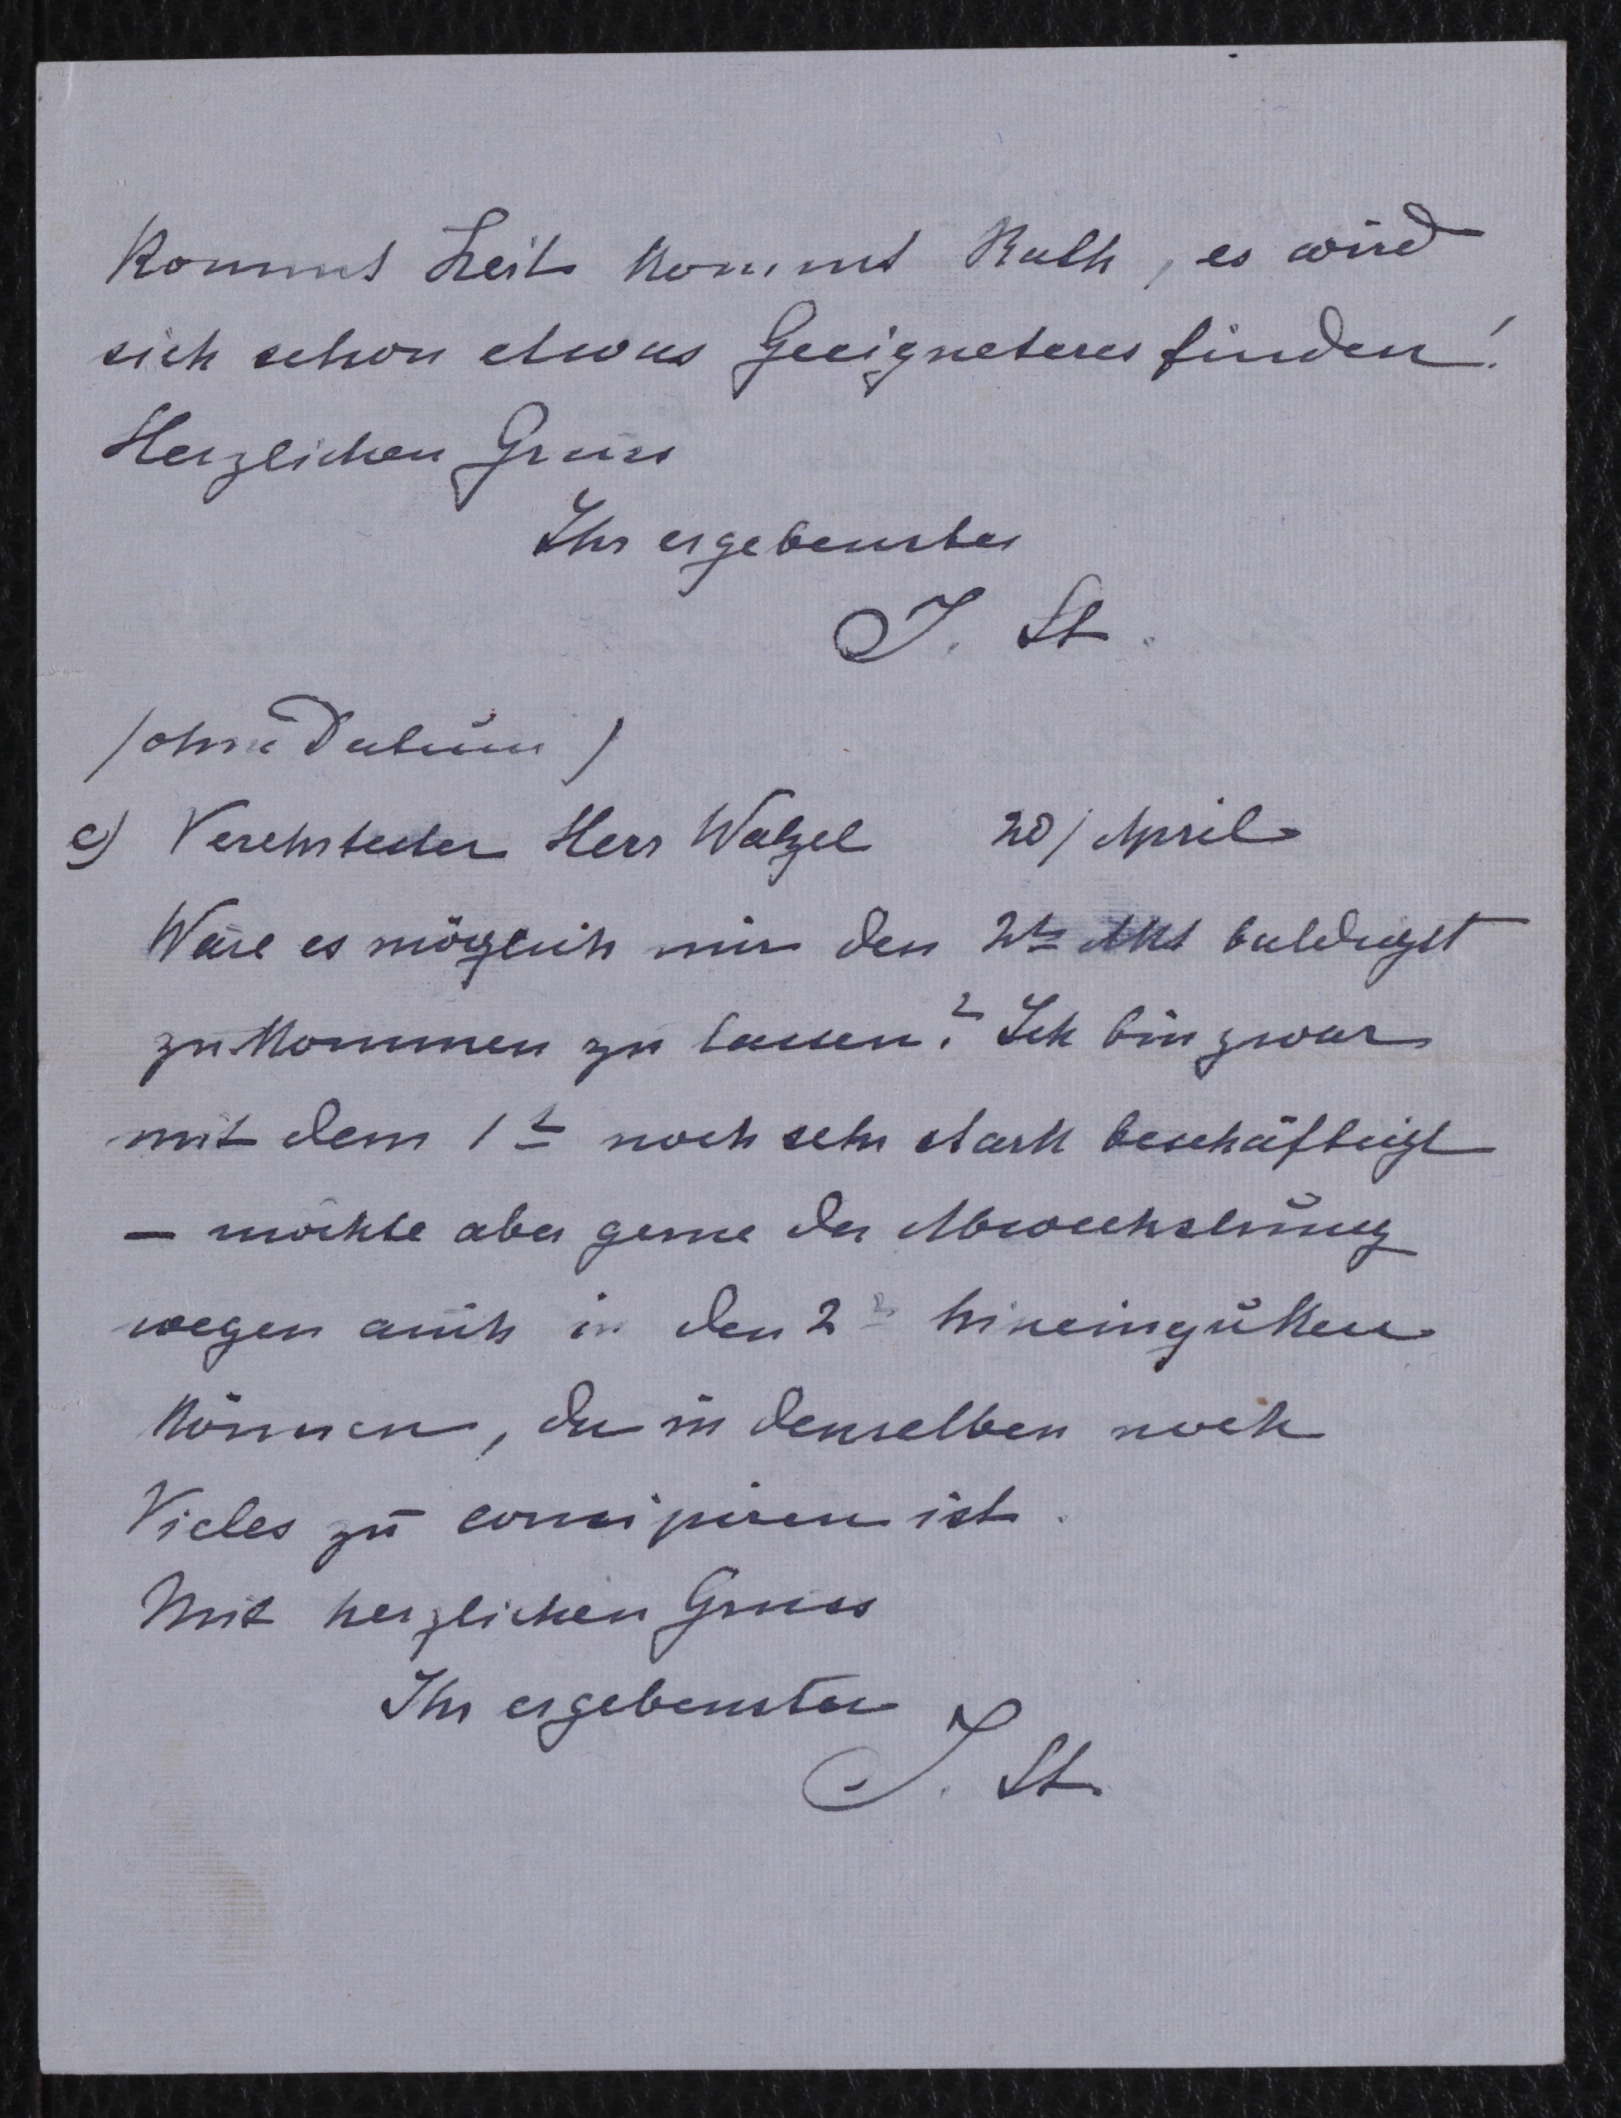 Kommt Zeit kommt Rath, es wird
sich schon etwas Geeigneteres finden!
Herzlichen Gruss
Ihr ergebenster
J. St.
/ohne Datum/
c) Verehrtester Herr Walzel 20/April
Wäre es möglich mir den 2te Akt baldigst
zukommen zu lassen? Ich bin zwar
mit dem 1t noch sehr stark beschäftigt
— möchte aber gerne der Abwechslung
wegen auch in den 2t hineinguken
können, da in denselben noch
Vieles zu concipiren ist.
Mit herzlichen Gruss
Ihr ergebenster
J. St.